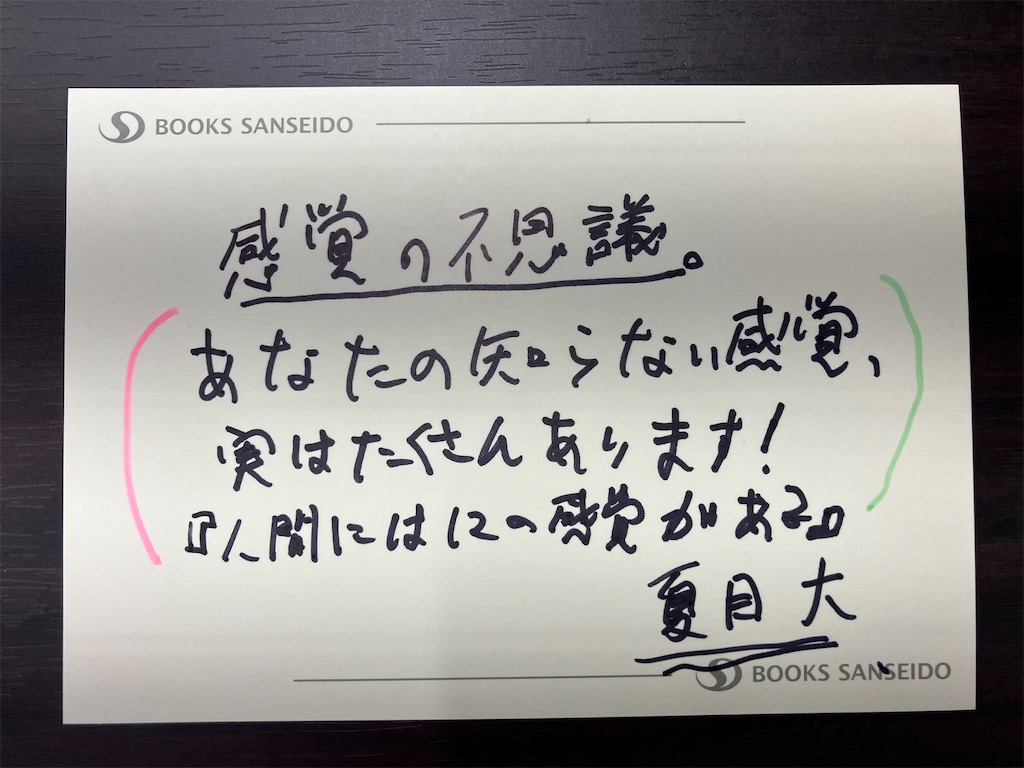 BOOKS SANSEIDO
感覚の不思議。
あなたの知らない感覚、
実はたくさんあります!
『人間には12の感覚がある』
夏目大
BOOKS SANSEIDO